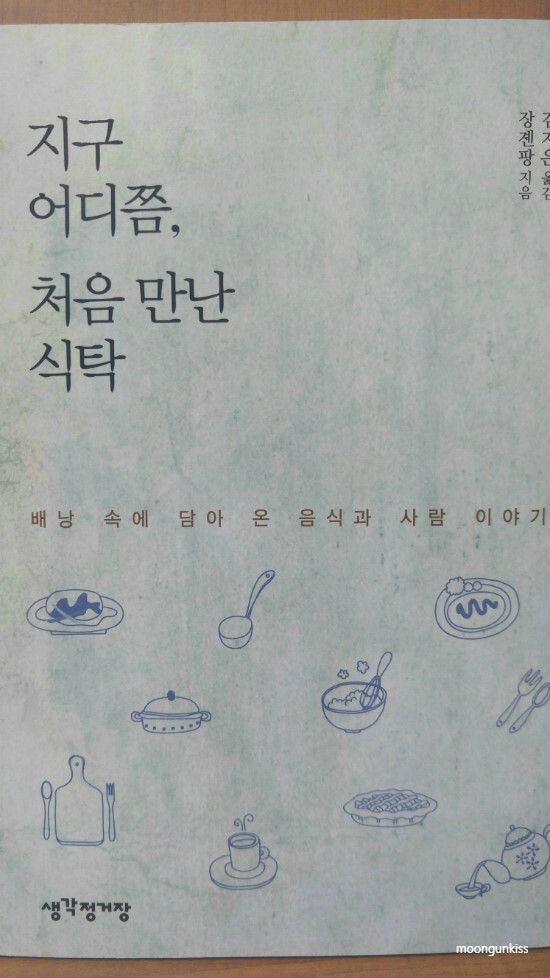 지구
어디쯤,
처음 만난
식탁
장졘팡 지음
배낭 속에 담아 온 음식과 사람 이야기
생각정거장
moongunkiss